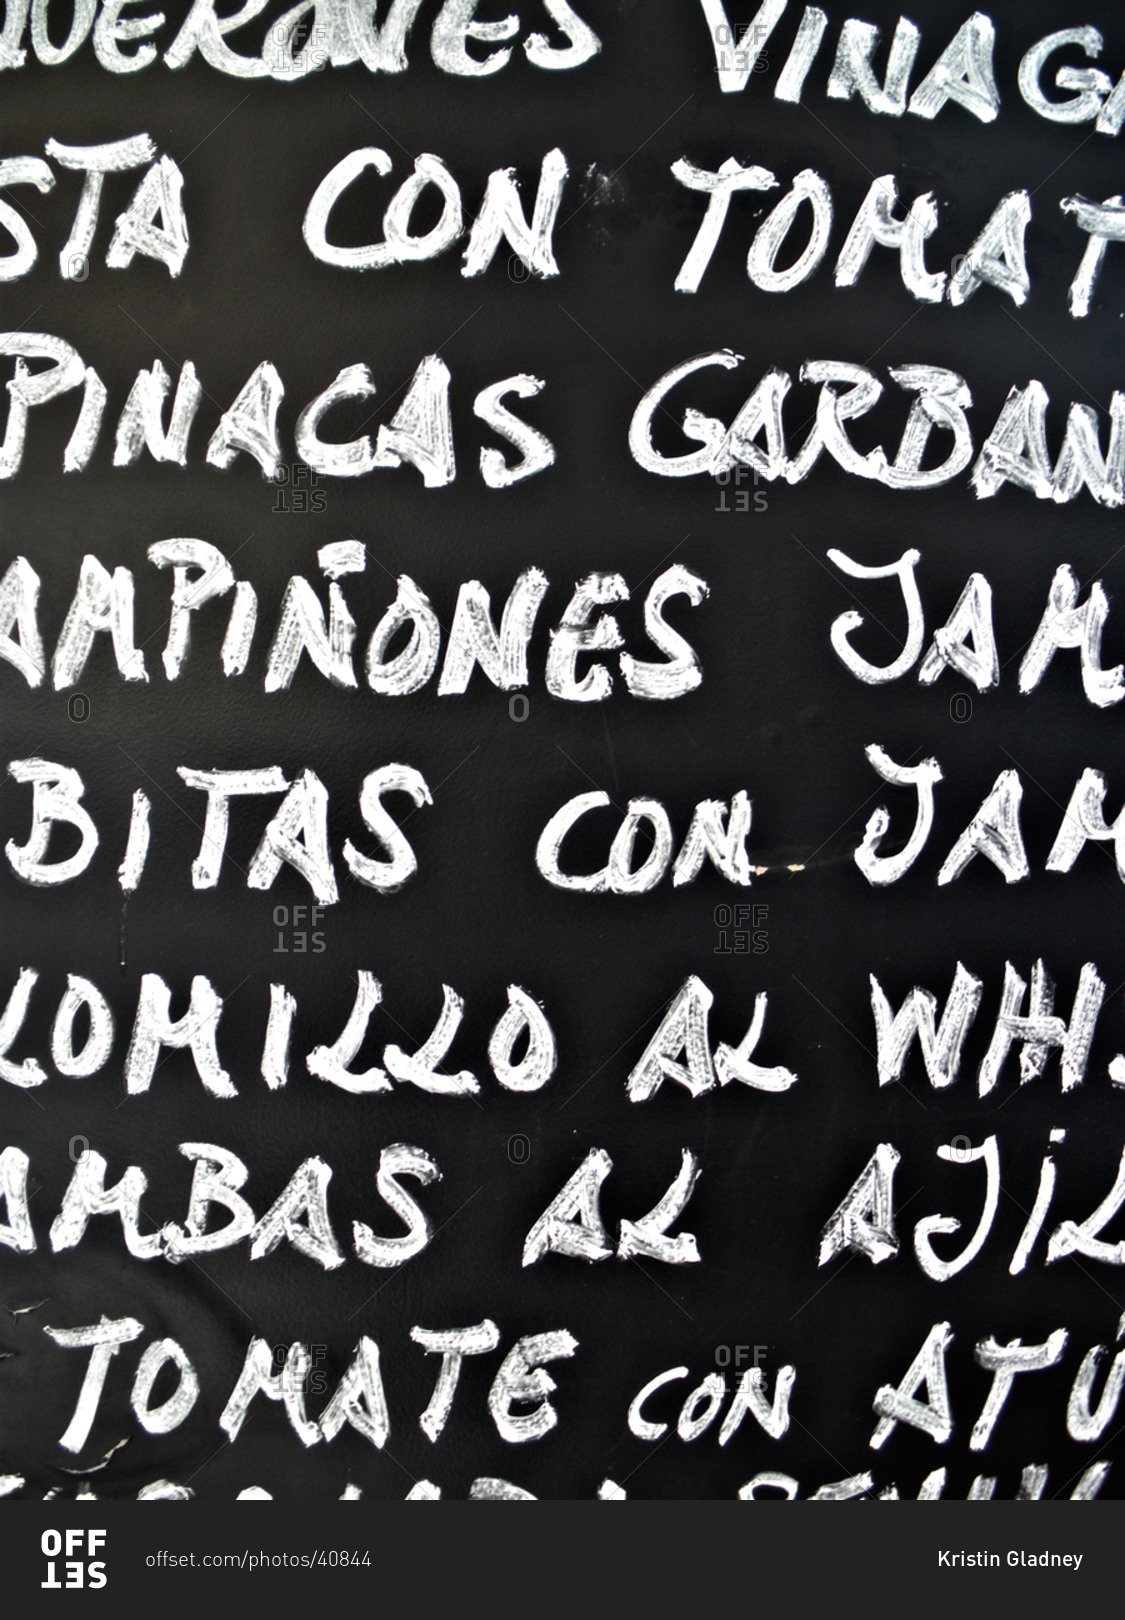 VINAG
STA CON TOMAT
PINACAS GARBAN
AMPIÑONES JAM
BITAS CON JAM
LOMILLO AL WHI
AMBAS AL AJIL
TOMATE CON ATÚ
OFF SET offset.com/photos/40844 Kristin Gladney